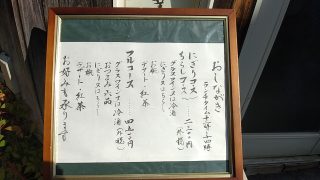 おしながき
ランチタイム十一時〜十四時
にぎりコース
ちらしコース
グラスワイン又は冷酒
お椀
デザート・紅茶
フルコース
グラスワイン又は冷酒（外税）
おつまみ六品
にぎり又はちらし
お椀
デザート・紅茶
お好みも承ります